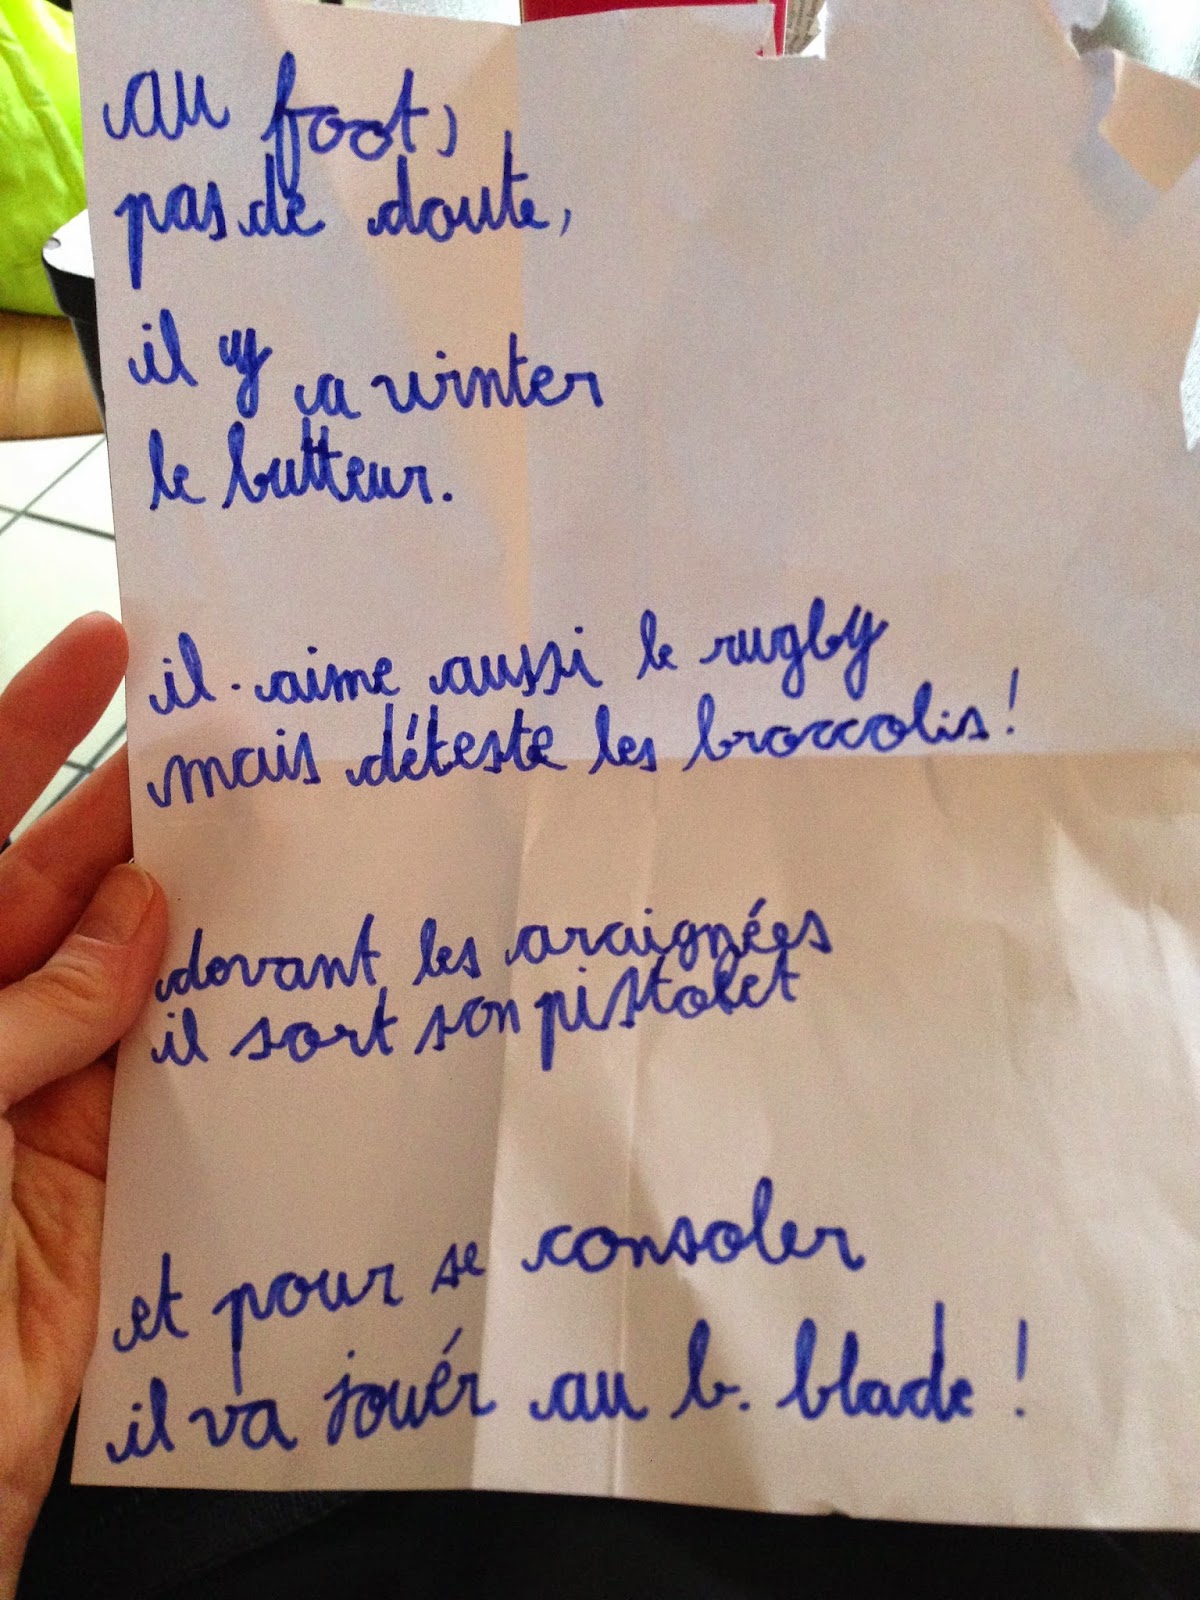 au foot,
pas de doute,
il y a winter
le butteur.
il. aime aussi le rugby
mais déteste les broccolis!
devant les araignées
il sort son pistolet
et pour se consoler
il va jouér au b. blade!